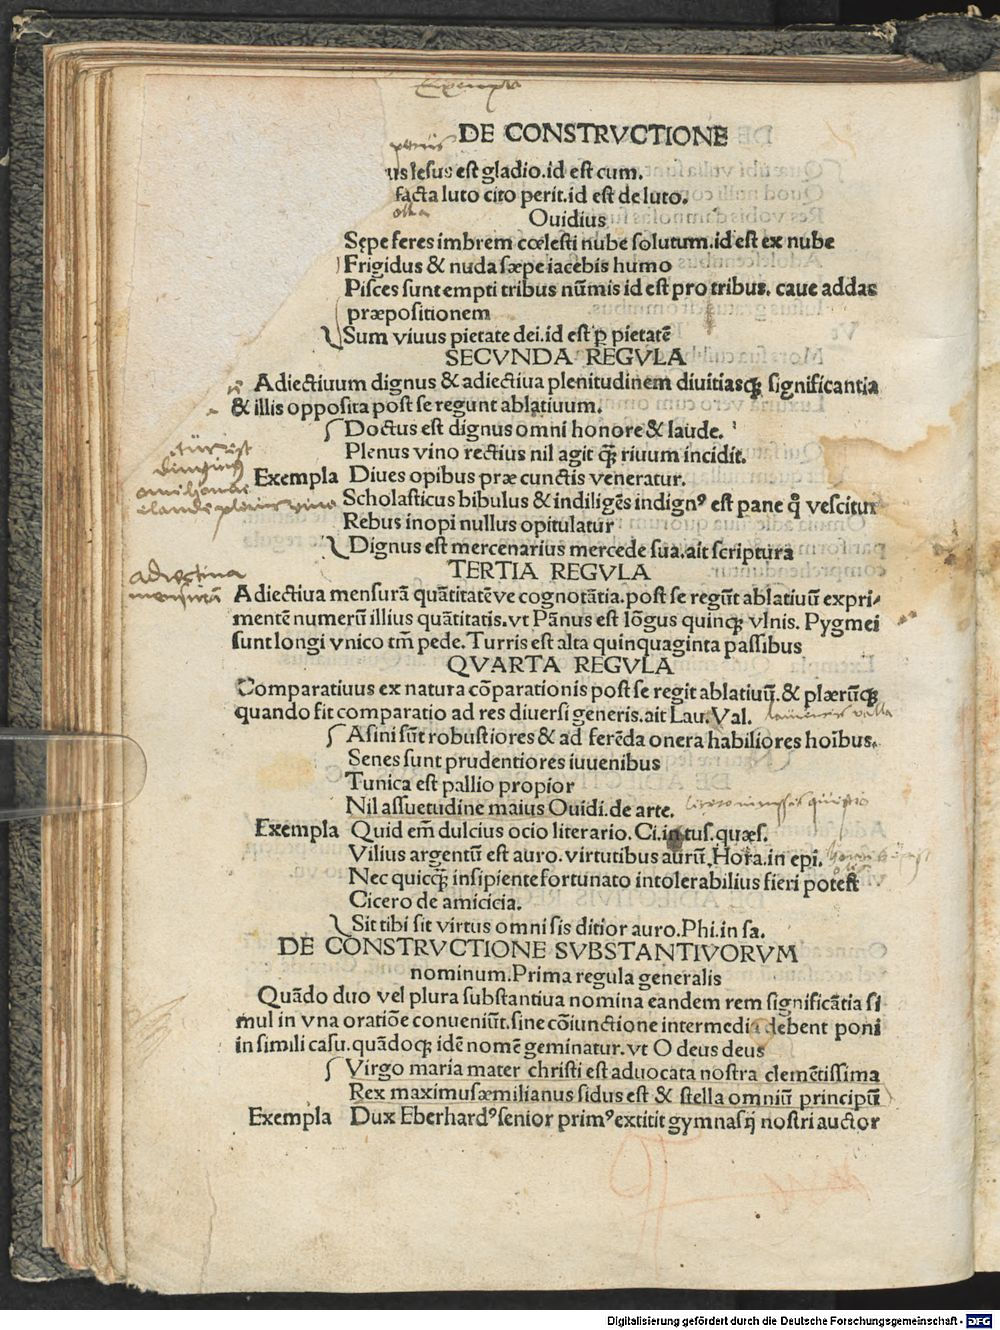 Exempla
DE CONSTRVCTIONE
us lesus est gladio.id est cum.
facta luto cito perit.id est de luto.
olla
Ouidius
Sępe feres imbrem cœlesti nube solutum.id est ex nube
Frigidus & nuda sæpe iacebis humo
Pisces sunt empti tribus nūmis id est pro tribus. caue addas
præpositionem
Sum viuus pietate dei.id est ꝑ pietatē
SECVNDA REGVLA
Adiectiuum dignus & adiectiua plenitudinem diuitiasqꝫ significantia
& illis opposita post se regunt ablatiuum.
Doctus est dignus omni honore & laude.
Plenus vino rectius nil agit qꝫ̄ riuum incidit.
Exempla Diues opibus præ cunctis veneratur.
Scholasticus bibulus & indiligēs indignꝰ est pane qͦ vescitur
Rebus inopi nullus opitulatur
Dignus est mercenarius mercede sua.ait scriptura
TERTIA REGVLA
adiectiua
mensurā
Adiectiua mensurā quātitatēve cognotātia.post se regūt ablatiuū expri-
mentē numerū illius quātitatis.vt Pānus est lōgus quinqꝫ vlnis. Pygmei
sunt longi vnico tm̄ pede. Turris est alta quinquaginta passibus
QVARTA REGVLA
Comparatiuus ex natura cōparationis post se regit ablatiuū.& plærūqꝫ
quando fit comparatio ad res diuersi generis.ait Lau.Val. laurencius valla
Asini sūt robustiores & ad ferēda onera habiliores hoībus.
Senes sunt prudentiores iuuenibus
Tunica est pallio propior
Nil assuetudine maius Ouidi.de arte.
Exempla Quid em̄ dulcius ocio literario. Ci.in tus.quæs.
Vilius argentū est auro.virtutibus aurū.Hora.in epi.
Nec quicqꝫ̄ insipiente fortunato intolerabilius fieri potest
Cicero de amicicia.
Sit tibi sit virtus omni sis ditior auro.Phi.in sa.
DE CONSTRVCTIONE SVBSTANTIVORVM
nominum.Prima regula generalis
Quādo duo vel plura substantiua nomina eandem rem significātia si
mul in vna oratiōe conueniūt.sine cōiunctione intermedia debent poni
in simili casu.quādoqꝫ idē nomē geminatur.vt O deus deus
Virgo maria mater christi est aduocata nostra clemētissima
Rex maximus æmilianus sidus est & stella omniū principū
Exempla Dux Eberhardꝰ senior primꝰ extitit gymnasij nostri auctor
Digitalisierung gefördert durch die Deutsche Forschungsgemeinschaft - DFG